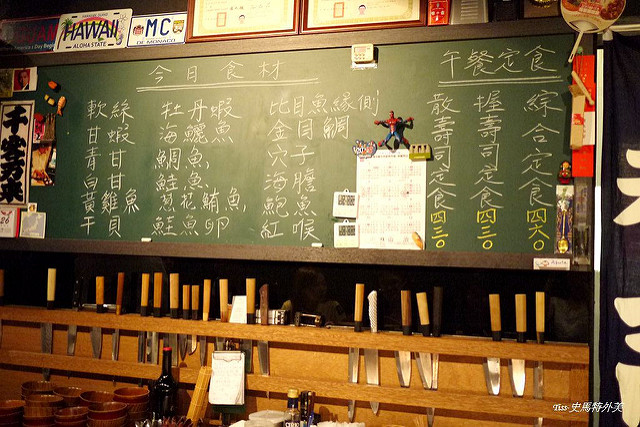 HAWAII
ALOHA STATE
MC
DE MONACO
今日食材
軟絲
甘蝦
青甘
白甘
黃雞魚
干貝
牡丹蝦
海鱺魚
鯛魚、
鮭魚、
葱花鮪魚、
鮭魚卵
比目魚緣側
金目鯛
穴子
海膽
鮑魚
紅喉
午餐定食
綜合定食 四六〇
握壽司定食 四三〇
散壽司定食 四三〇
千客万来
Tiss 史馬特外芙